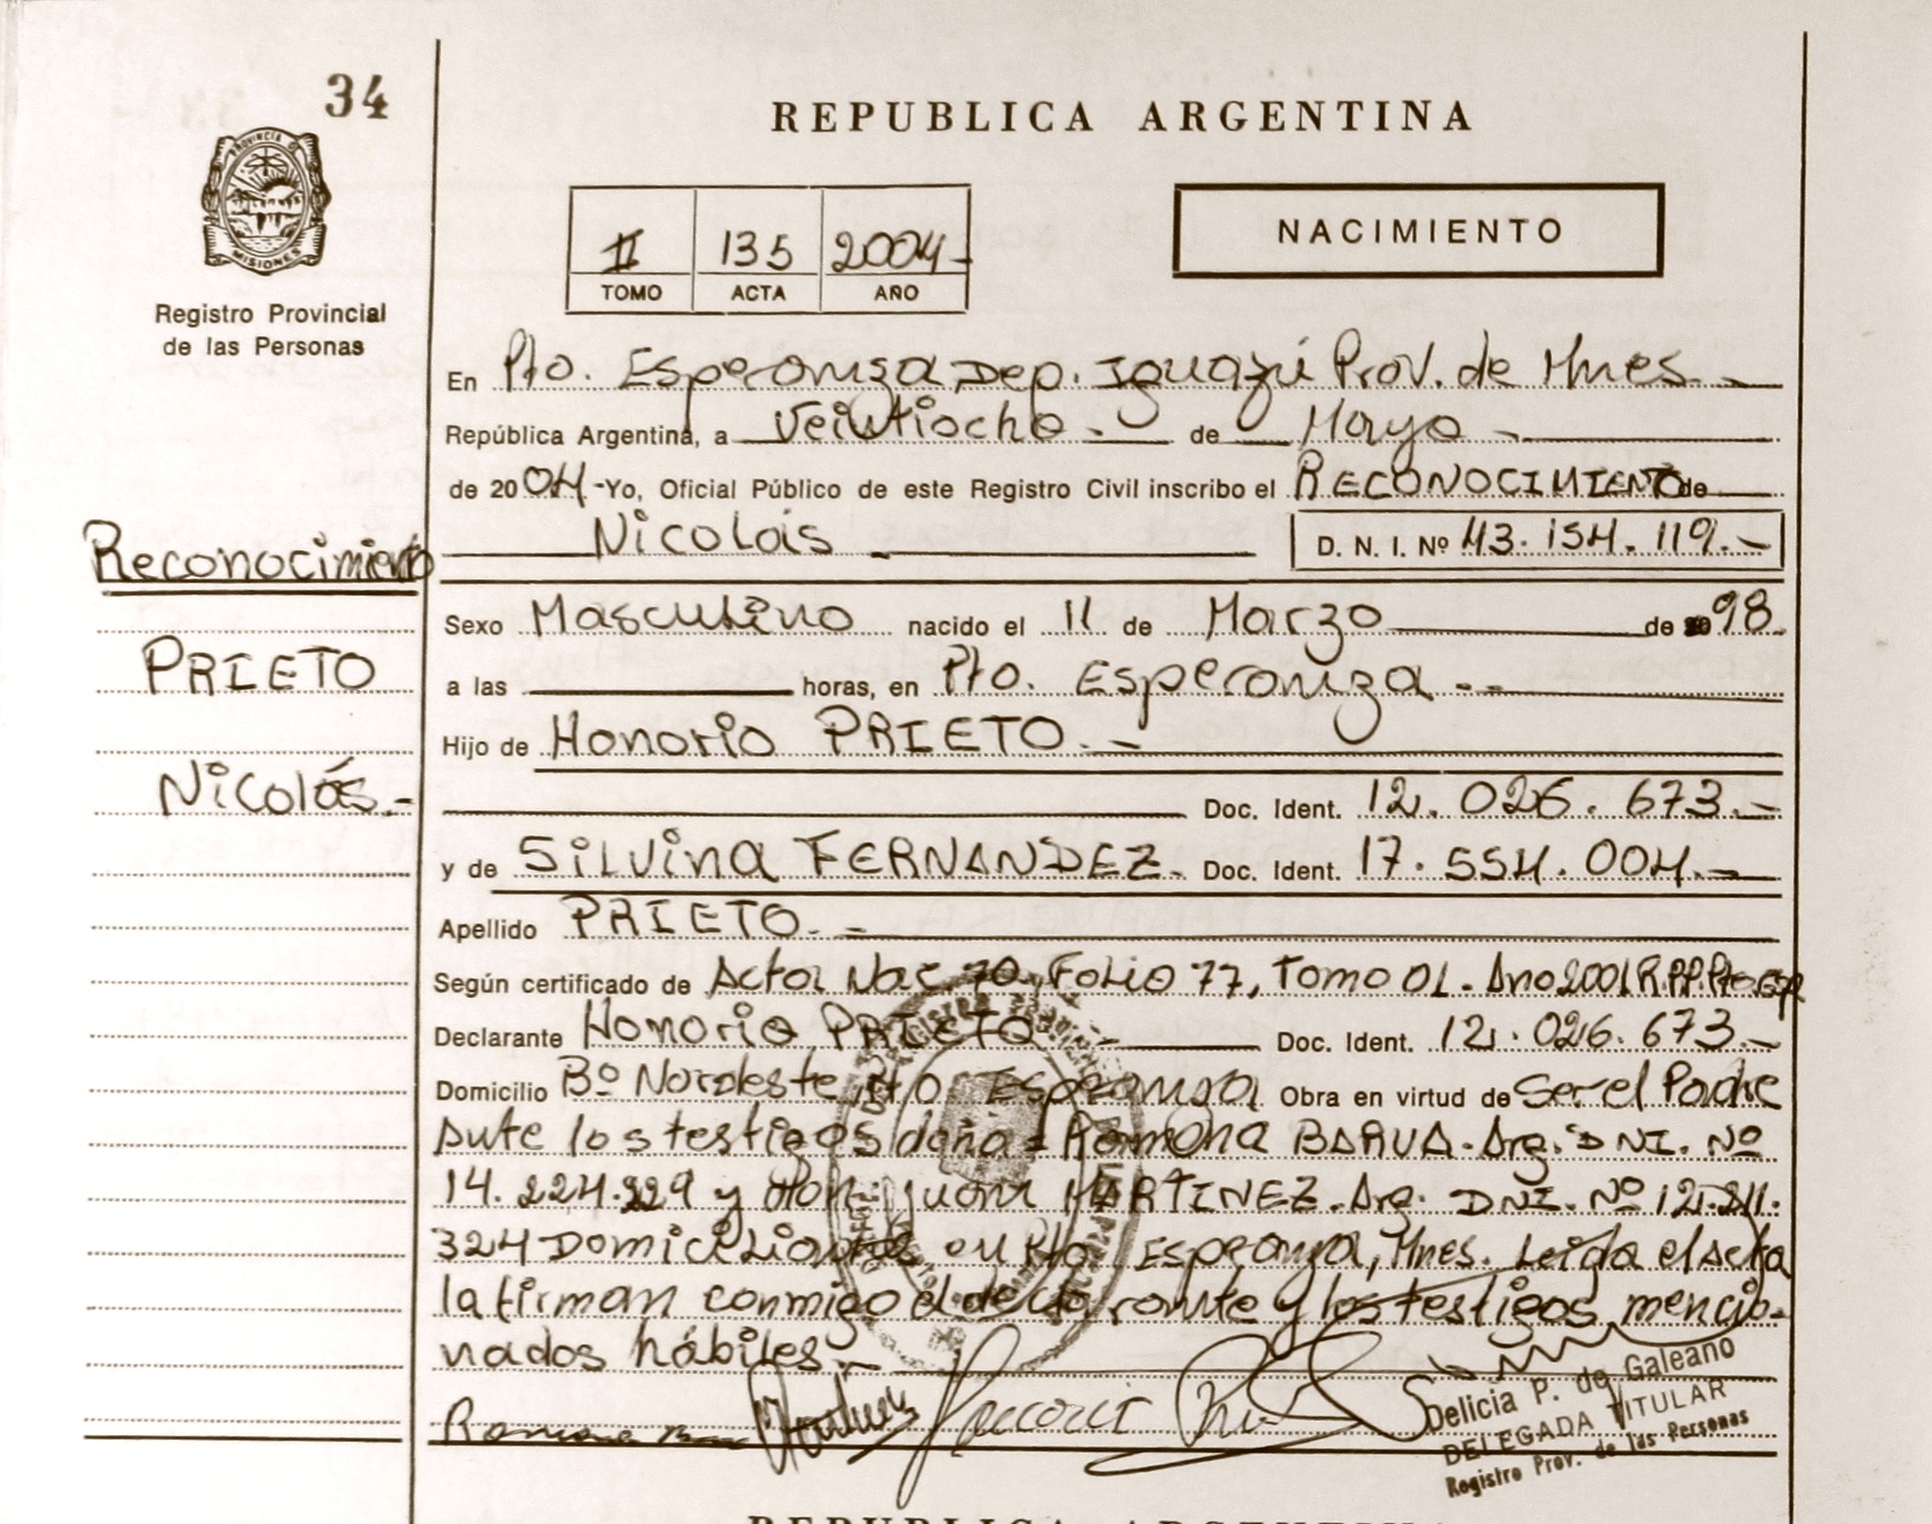 34
REPUBLICA ARGENTINA
PROVINCIA D
MISIONES
Registro Provincial
de las Personas
II 135 2004-
TOMO ACTA AÑO
NACIMIENTO
En Pto. Esperanza Dep. Iguazú Prov. de Mnes. -
República Argentina, a Veintiocho - de Mayo -
de 2004 - Yo, Oficial Público de este Registro Civil inscribo el RECONOCIMIENTO de
Nicolás - D. N. I. Nº 43.154.119.-
Reconocimiento
Sexo Masculino nacido el 11 de Marzo de 98
PRIETO
a las horas, en Pto. Esperanza - -
Hijo de Honorio PRIETO. -
Nicolás.-
Doc. Ident. 12.026.673.-
y de SILVINA FERNANDEZ. Doc. Ident. 17.554.004.-
Apellido PRIETO. -
Según certificado de Acta Nac. 70, Folio 77, Tomo 01 - Año 2001 R.P.P. Pto. Esp
Declarante Honorio PRIETO - Doc. Ident. 12.026.673.-
Domicilio Bº Nordeste, Pto Esperanza Obra en virtud de Ser el Padre
Ante los testigos doña Ramona BARUA - Arg. DNI. Nº
14.224.229 y don Juan MARTINEZ. Arg. DNI. Nº 12.211.
324 Domiciliados en Pto. Esperanza, Mnes. Leida el acta
la firman conmigo el declarante y los testigos mencio-
nados hábiles. -
Ramona
Delicia P. de Galeano
DELEGADA TITULAR
Registro Prov. de las Personas
REPUBLICA ARGENTINA